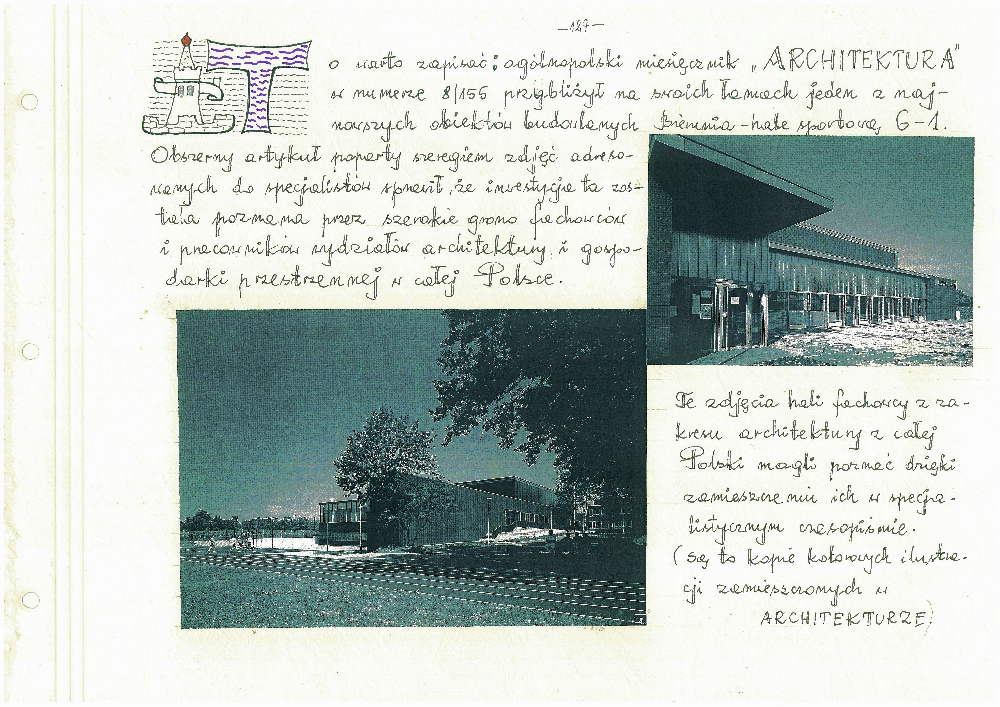 —127—
To warto zapisać: ogólnopolski miesięcznik „ARCHITEKTURA"
w numerze 8/155 przybliżył na swoich łamach jeden z naj-
nowszych obiektów budowlanych Bierunia - halę sportową G-1.
Obszerny artykuł poparty szeregiem zdjęć adreso-
wanych do specjalistów sprawił, że inwestycja ta zos-
tała poznana przez szerokie grono fachowców
i pracowników wydziałów architektury i gospo-
darki przestrzennej w całej Polsce.
Te zdjęcia hali fachowcy z za-
kresu architektury z całej
Polski mogli poznać dzięki
zamieszczeniu ich w specja-
listycznym czasopiśmie.
(Są to kopie kolorowych ilustra-
cji zamieszczonych w
ARCHITEKTURZE)